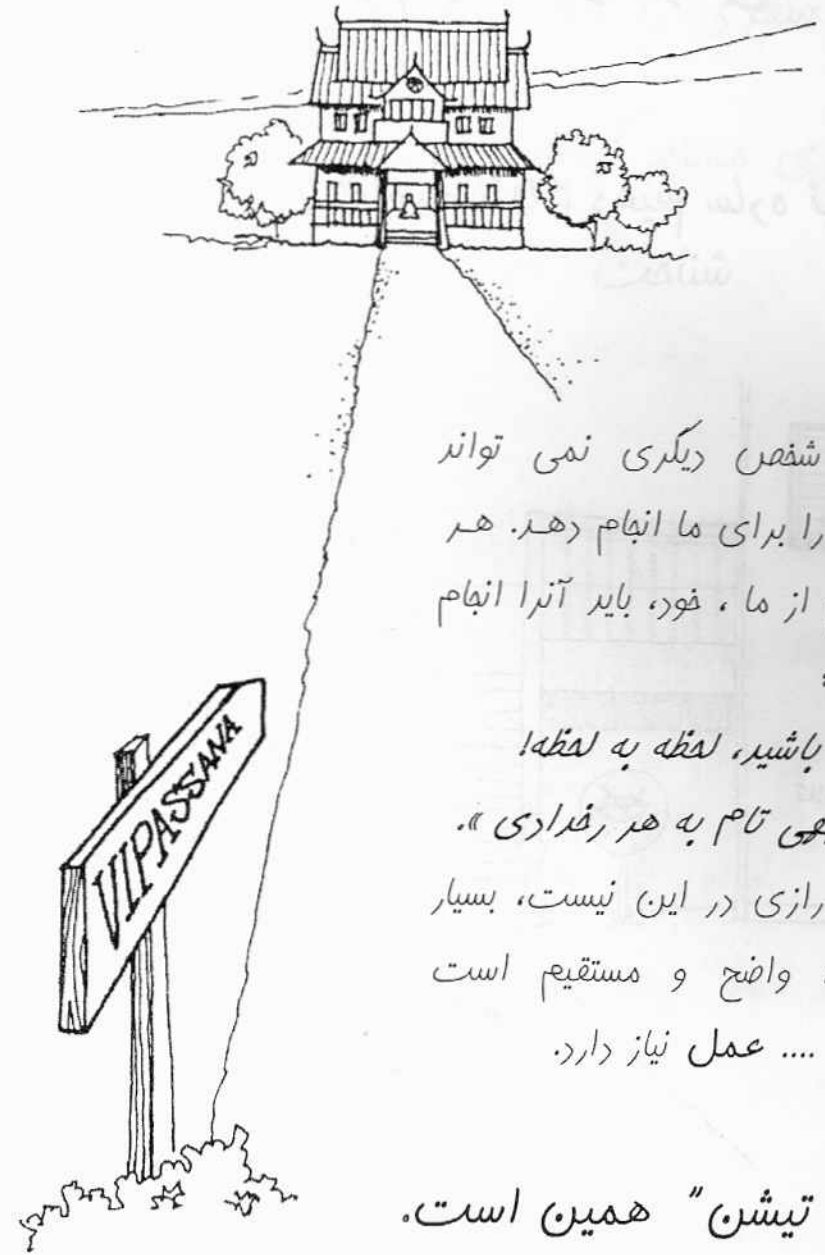 VIPASSANA
شخص دیگری نمی تواند
را برای ما انجام دهد. هر
از ما ، خود، باید آنرا انجام
باشید، لحظه به لحظه!
تام به هر رخدادی ».
رازی در این نیست، بسیار
واضح و مستقیم است
.... عمل نیاز دارد.
تیشن" همین است.